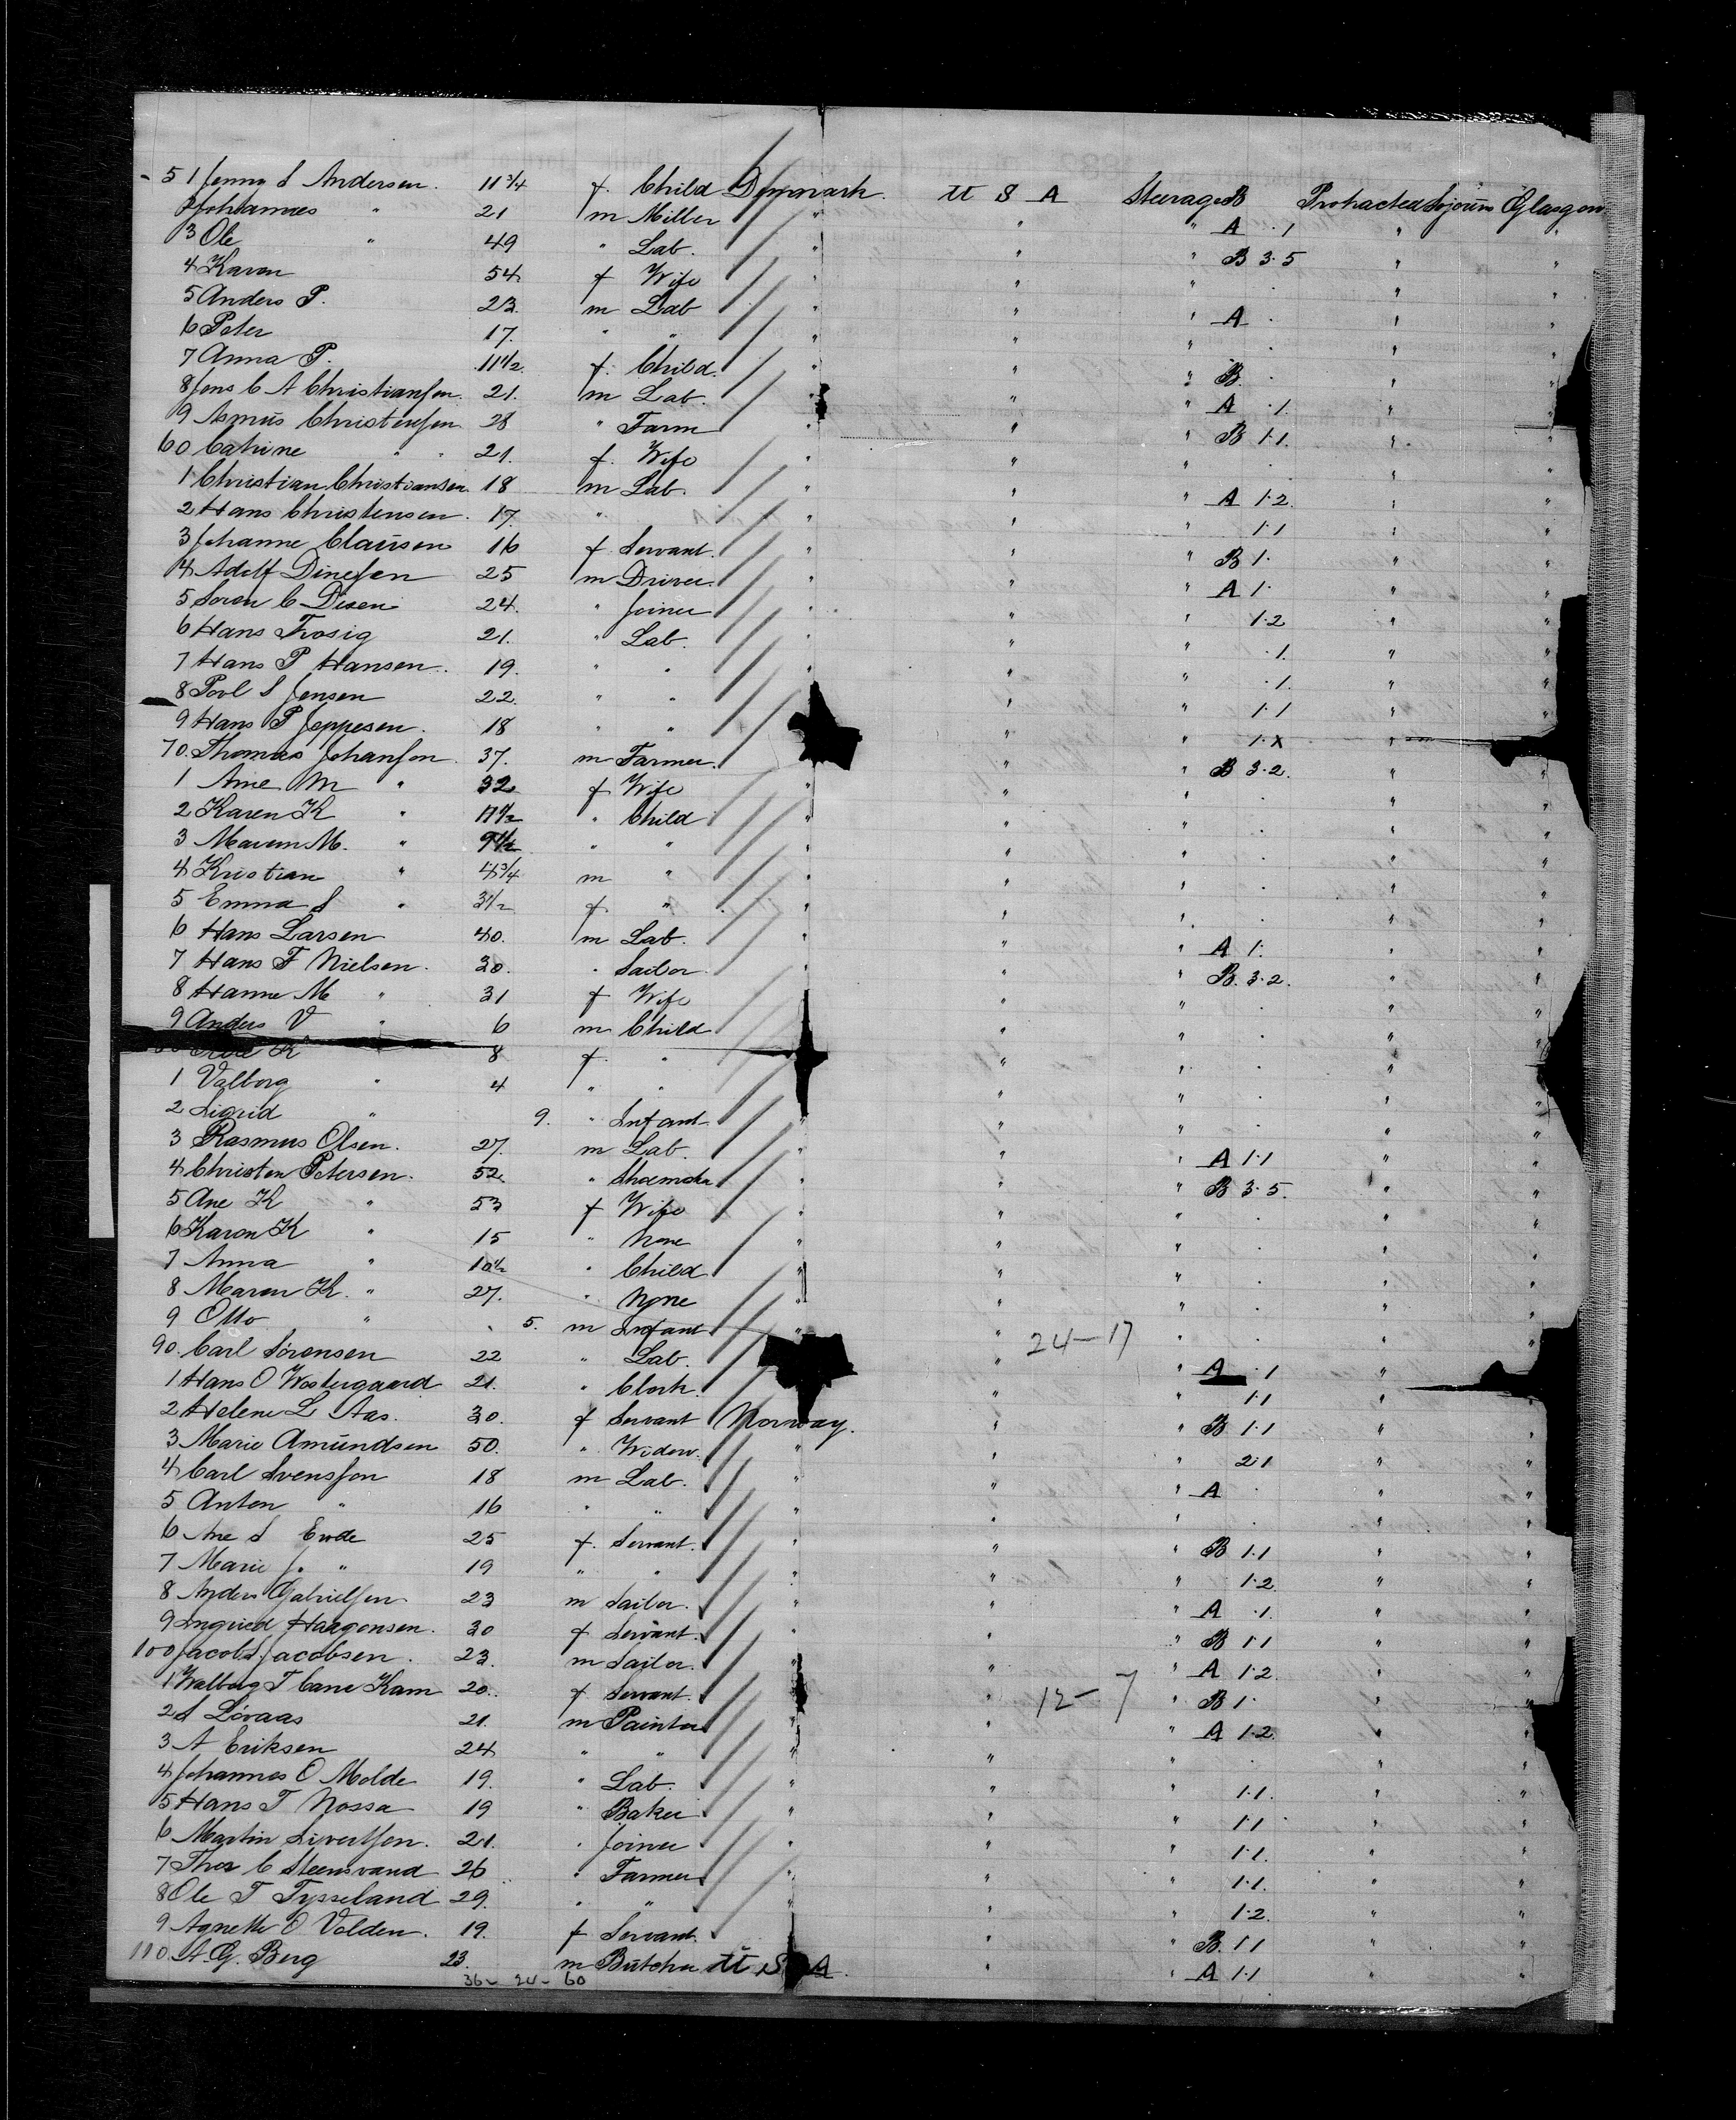 51 Jenny S Andersen. 11 3/4 f. Child Denmark. U S A Steerage B Protracted Sojourn Glasgow
2 Johannes " 21 m Miller " " " A .1 " "
3 Ole " 49 " Lab. " " " B 3.5 " "
4 Karen 54 f Wife " " " . " "
5 Anders P. 23. m Lab " " " A . " "
6 Peter 17. " " " " " . " "
7 Anna P. 11 1/2 f. Child. " " " B . " "
8 Jens C A Christiansen. 21. m Lab. " " " A .1. " "
9 Asmus Christensen 28 " Farm " " " B 1.1. " "
60 Catrine " 21. f. Wife " " " . " "
1 Christian Christiansen. 18 m Lab. " " " A 1.2. " "
2 Hans Christensen. 17. " " " " 1.1 " "
3 Johanne Clausen 16 f. Servant. " " " B 1. " "
4 Adolf Dinesen 25 m Driver. " " " A 1. " "
5 Soren C Disen 24. " Joiner " " " 1.2 " "
6 Hans Frosig 21. " Lab. " " " .1. " "
7 Hans P Hansen. 19. " " " " " .1. " "
8 Povl S Jensen 22. " " " " 1.1 " "
9 Hans P Jeppesen. 18 " " " " 1.X " "
70. Thomas Johansen. 37. m Farmer. " " B 3.2. " "
1 Ane M " 32 f Wife " " " . " "
2 Karen K " 11 1/2 " Child " " " . " "
3 Maren M. " 9 1/2 " " " " " . " "
4 Kristian " 4 3/4 m " " " " . " "
5 Emma S " 3 1/2 f. " " " " . " "
6 Hans Larsen 40. m Lab. " " " A 1. " "
7 Hans F Nielsen. 30. " Sailor. " " " B. 3.2. " "
8 Hanne M " 31 f Wife " " . " "
9 Anders V " 6 m Child " " . " "
K " 8 f. " " " . " "
1 Valborg " 4 " " " " . " "
2 Sigrid " 9. " Infant " " " . " "
3 Rasmus Olsen. 27. m Lab. " " " A 1.1 " "
4 Christen Petersen. 52. " Shoemaker " " " B 3.5. " "
5 Ane K " 53 f Wife " " " . " "
6 Karen K " 15 " None " " " . " "
7 Anna " 10 1/2 " Child " " " . " "
8 Maren K. " 27. " None " " " . " "
9 Otto " 5. m Infant " " 24-17 " . " "
90. Carl Sörensen 22 " Lab. " " A .1 " "
1 Hans O Westergaard 21. " Clerk. " " 1.1 " "
2 Helene L Aas. 30. f Servant Norway. " " B 1.1 " "
3 Marie Amundsen 50. " Widow. " " " 2.1 " "
4 Carl Svensson 18 m Lab. " " " A . " "
5 Anton " 16 " " " " " . " "
6 Ane S Erode 25 f. Servant. " " " B 1.1 " "
7 Marie J. " 19 " " " " " 1.2. " "
8 Anders Gabrielsen 23 m Sailor. " " " A .1. " "
9 Ingried Haagensen. 30 f Servant. " " " B 1.1 " "
100 Jacob S. Jacobsen. 23. m Sailor. " " " A 1.2. " "
1 Walborg T Cane Kam 20. f Servant. " 12-7 " B 1. " "
2 S Lövaas 21. m Painter " " " A 1.2. " "
3 A Eriksen 24 " " " " " . " "
4 Johannes O Molde 19. " Lab. " " " 1.1. " "
5 Hans T Nossa 19 " Baker " " " 1.1 " "
6 Martin Sivertsen. 21. " Joiner " " " 1.1. " "
7 Thor C Steensvand 26 " Farmer " " " 1.1. " "
8 Ole T Tysseland 29. " " " " " 1.2. " "
9 Agnette O Volden. 19. f Servant. " " B. 1.1 " "
110 A. G. Berg 23. m Butcher U S A. " " A 1.1 " "
36- 24- 60